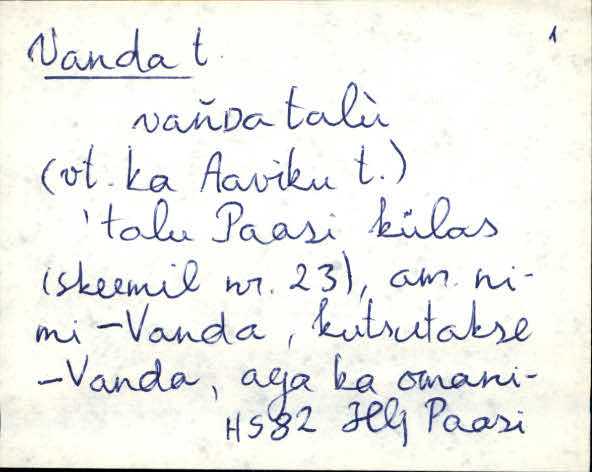 Vanda t. 1
vañDa talù
(vt. ka Aaviku t.)
'talu Paasi külas
(skeemil nr. 23), am. ni-
mi - Vanda, kutsutakse
- Vanda, aga ka omani-
HS82 Paasi